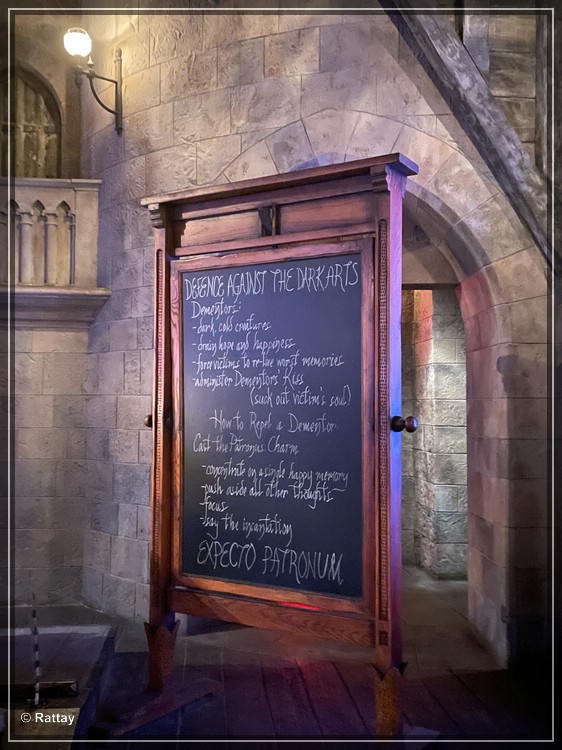 DEFENCE AGAINST THE DARK ARTS
Dementors:
-dark, cold creatures
-drain hope and happiness
-force victims to re-live worst memories
-administer Dementors Kiss
(suck out victims soul)
-How to Repel a Dementor-
Cast the Patronus Charm
-concentrate on a single happy memory
-push aside all other thoughts-
-focus
-say the incantation
EXPECTO PATRONUM
© Rattay